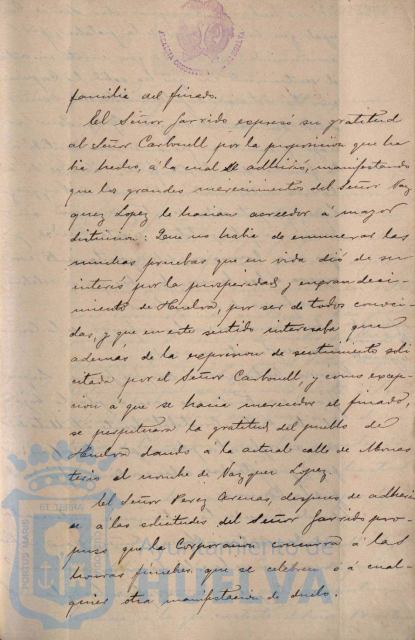 familia del finado.
El Señor Garrido expresó su gratitud
al Señor Carbonell por la proposicion que ha
bia hecho, á la cual se adhirió, manifestando
que los grandes merecimientos del Señor Vaz
quez Lopez le hacian acreedor á mayor
distincion: Que no habia de enumerar las
muchas pruebas que en vida dió de su
interés por la prosperidad y engrandeci-
miento de Huelva, por ser de todos conoci-
das, y que en este sentido interesaba que
además de la expresion de sentimiento soli
citada por el Señor Carbonell, y como excep
cion á que se hacia merecedor el finado,
se perpetuara la gratitud del pueblo de
Huelva dando a la actual calle de Monas
terio el nombre de Vazquez Lopez.
El Señor Perez Arenas, despues de adheri
se á las solicitudes del Señor Garrido pro
puso que la Corporacion concurra á las
honras fúnebres que se celebren o á cual-
quier otra manifestacion de duelo.
Ayuntamiento de
HUELVA
PORTUS MARIS
ET TERRA